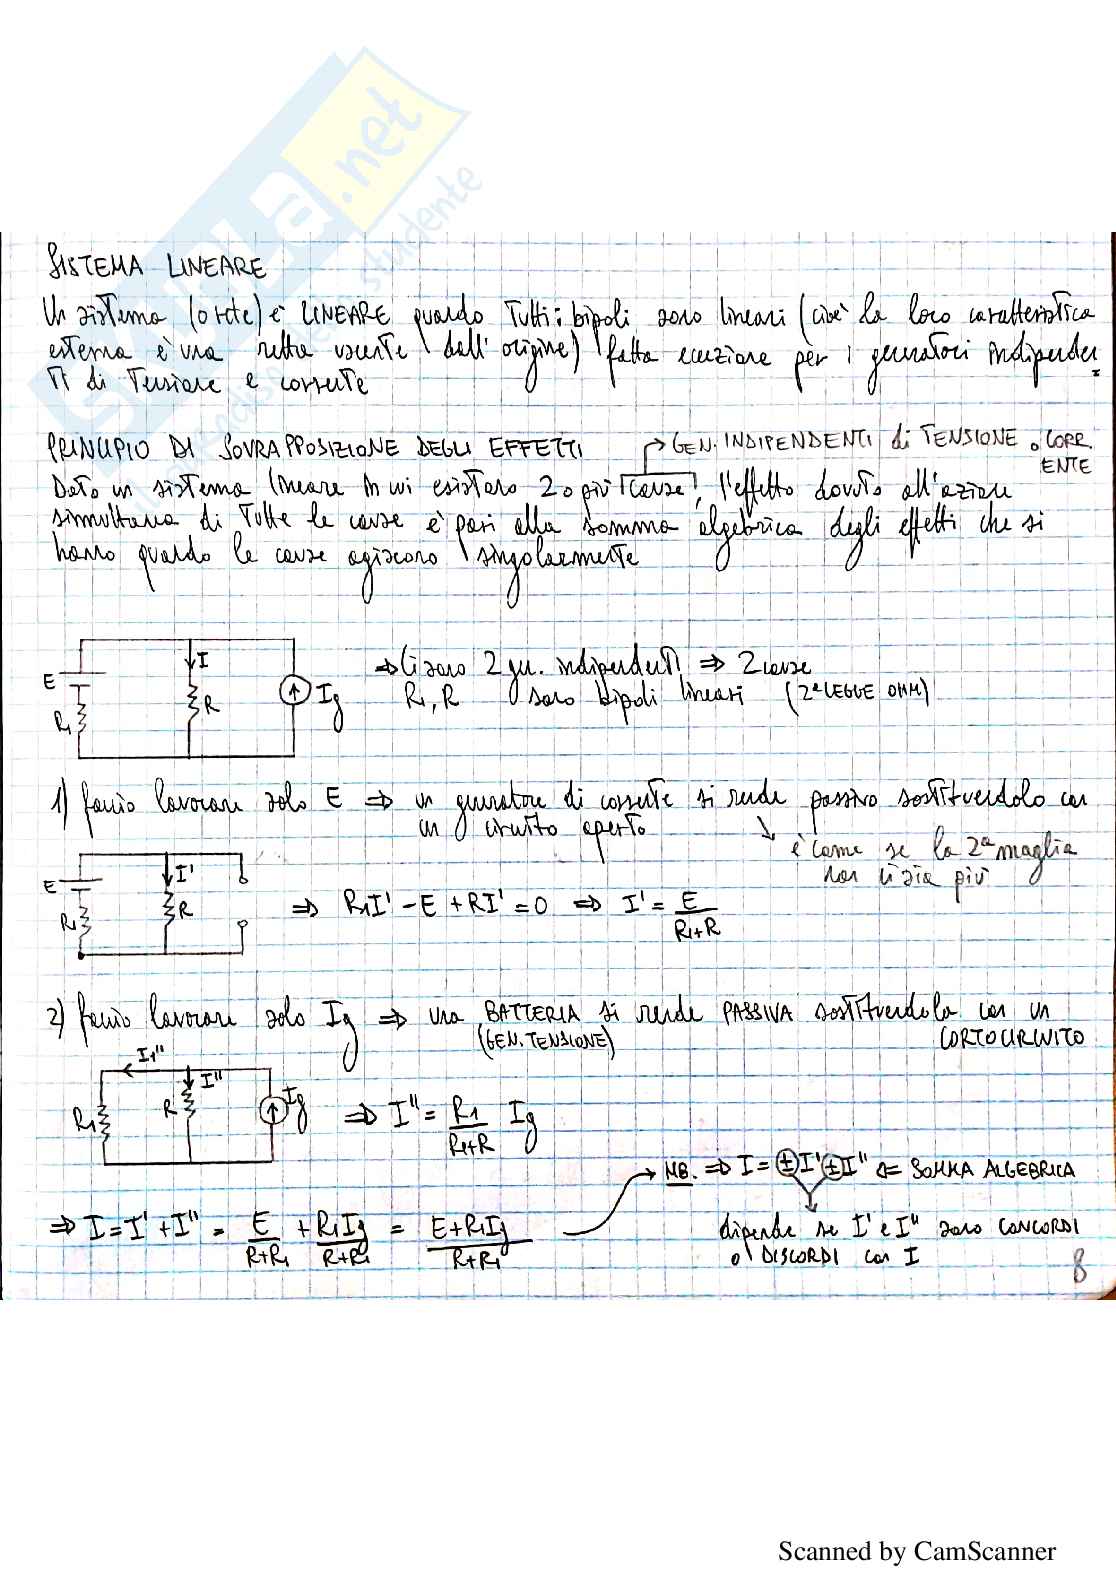 SKUOLA.net
SISTEMA LINEARE
Un sistema (o rete) è LINEARE quando tutti i bipoli sono lineari (cioè la loro caratteristica
esterna è una retta uscente dall'origine) fatta eccezione per i generatori indipenden
ti di tensione e corrente
PRINCIPIO DI SOVRAPPOSIZIONE DEGLI EFFETTI
→ GEN. INDIPENDENTI di TENSIONE o CORR
ENTE
Dato un sistema lineare in cui esistano 2 o più "cause", l'effetto dovuto all'azione
simultanea di tutte le cause è pari alla somma algebrica degli effetti che si
hanno quando le cause agiscono singolarmente
E R1 I R Ig
⇒ Ci sono 2 gen. indipendenti ⇒ 2 cause
R1, R sono bipoli lineari (2ª LEGGE OHM)
1) faccio lavorare solo E ⇒ un generatore di corrente si rende passivo sostituendolo con
un circuito aperto
è come se la 2ª maglia
non ci sia più
E R1 I' R
⇒ R1I' - E + RI' = 0 ⇒ I' = E / (R1+R)
2) faccio lavorare solo Ig ⇒ una BATTERIA si rende PASSIVA sostituendola con un
(GEN. TENSIONE) CORTOCIRCUITO
R1 I1'' R I'' Ig
⇒ I'' = R1 / (R1+R) Ig
→ NB. ⇒ I = ± I' ± I'' ⇐ SOMMA ALGEBRICA
⇒ I = I' + I'' = E / (R+R1) + R1Ig / (R+R1) = (E + R1Ig) / (R+R1)
dipende se I' e I'' sono CONCORDI
o DISCORDI con I
8
Scanned by CamScanner